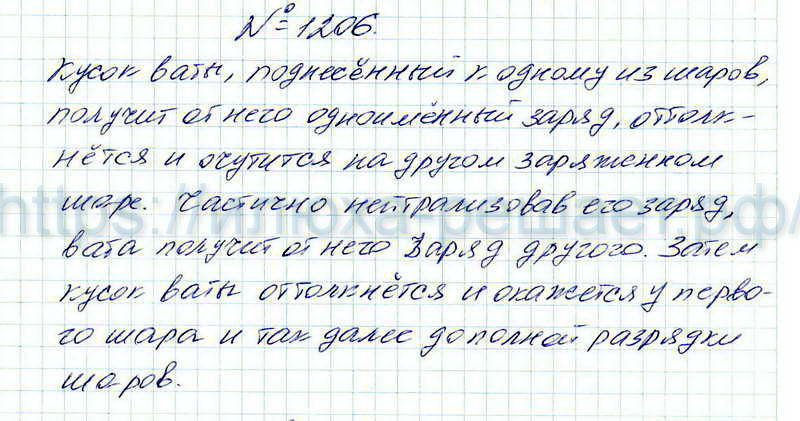 № 1206.
Кусок ваты, поднесённый к одному из шаров,
получит от него одноимённый заряд, оттолк-
нётся и очутится на другом заряженном
шаре. Частично нейтрализовав его заряд,
вата получит от него заряд другого. Затем
кусок ваты оттолкнётся и окажется у перво-
го шара и так далее до полной разрядки
шаров.